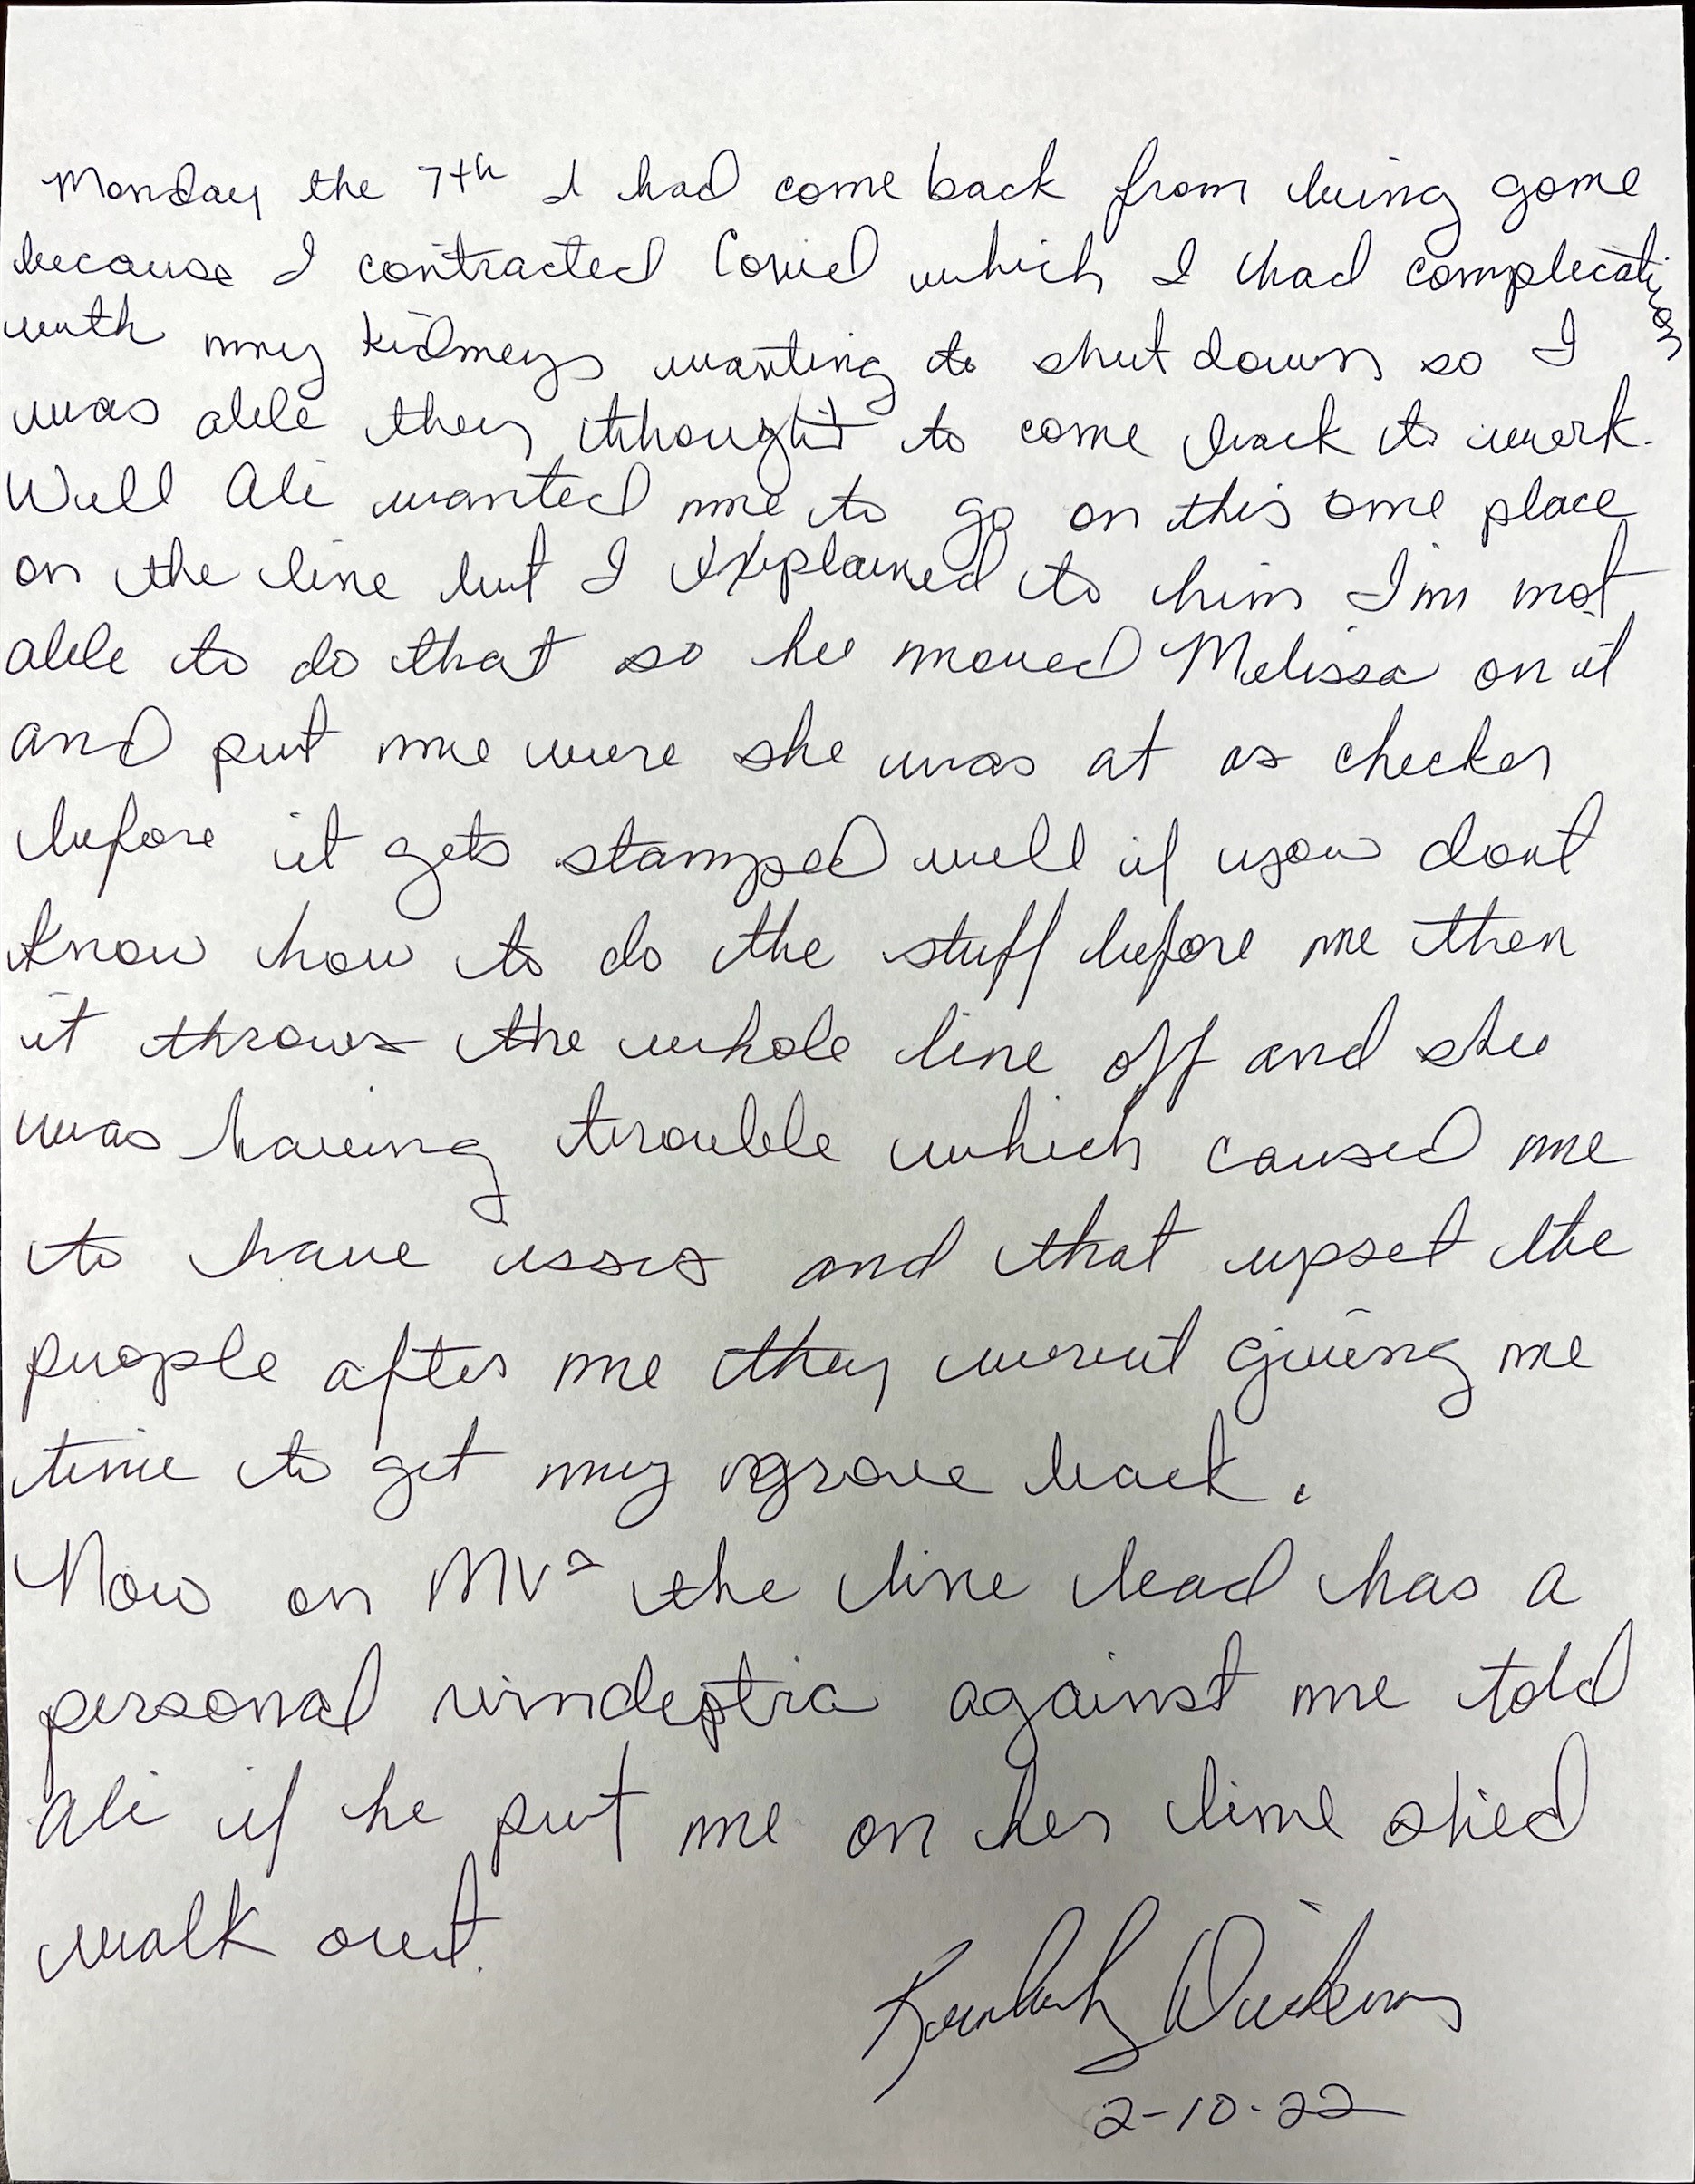 Monday the 7th I had come back from being gone
because I contracted Covid which I had complications
with my kidneys wanting to shut down so I
was able they thought to come back to work.
Well Ali wanted me to go on this one place
on the line but I explained to him I'm not
able to do that so he moved Melissa on it
and put me were she was at as checker
before it gets stamped well if you dont
know how to do the stuff before me then
it throws the whole line off and she
was having trouble which caused me
to have isses and that upset the
people after me they werent giving me
time to get my grove back.
Now on MV2 the line lead has a
personal vindeptia against me told
Ali if he put me on her line shed
walk out.
2-10-22